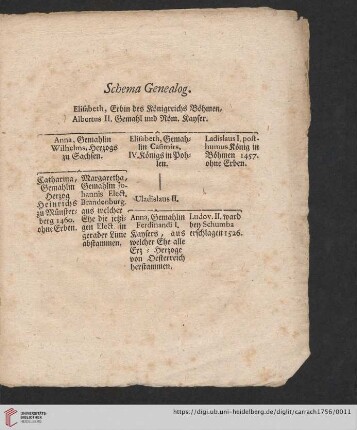 Schema Genealog.
Elisabeth, Erbin des Königreichs Böhmen,
Albertus II. Gemahl und Röm. Kayser.
Anna, Gemahlin
Wilhelms, Herzogs
zu Sachsen.
Elisabeth, Gemah-
lin Casimirs,
IV. Königs in Poh-
len.
Ladislaus I. post-
humus König in
Böhmen 1457.
ohne Erben.
Catharina,
Gemahlin
Herzog
Heinrichs
zu Münster-
berg 1460.
ohne Erben.
Margaretha,
Gemahlin Jo-
hannis Elect.
Brandenburg.
aus welcher
Ehe die jetzi-
gen Elect. in
gerader Linie
abstammen.
Uladislaus II.
Anna, Gemahlin
Ferdinandi I.
Kaysers, aus
welcher Ehe alle
Erz-Herzoge
von Oesterreich
herstammen.
Ludov. II. ward
bey Schumba
erschlagen 1526.
UNIVERSITÄTS-
BIBLIOTHEK
HEIDELBERG
https://digi.ub.uni-heidelberg.de/diglit/carrach1756/0011